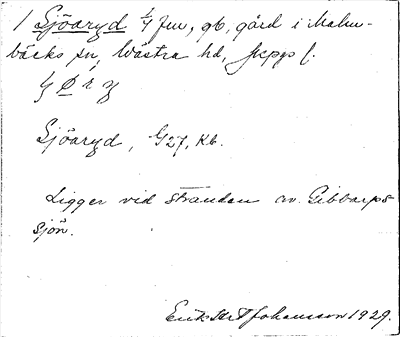 1 Sjöaryd 1/4 fm, gb, gård i Malm-
bäcks sn, Västra hd, Jkpgs l.
Sjöaryd, G27, Kb.
Ligger vid stranden av Gibbarps
sjön.
Erik Johansson 1929.